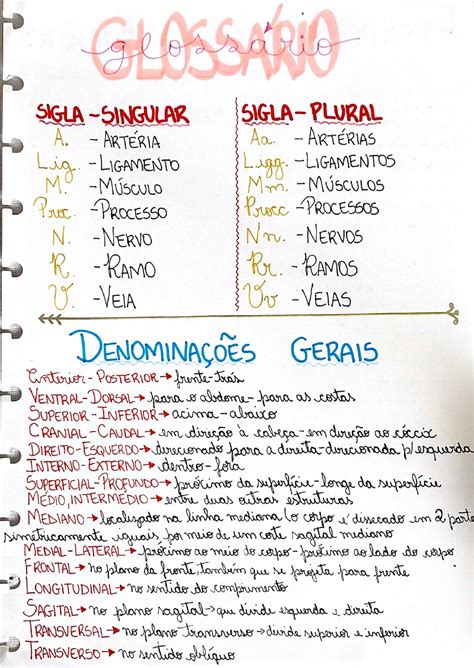 GLOSSÁRIO
glossário
SIGLA - SINGULAR
A. - ARTÉRIA
Lig. - LIGAMENTO
M. - MÚSCULO
Proc. - PROCESSO
N. - NERVO
R. - RAMO
V. - VEIA
SIGLA - PLURAL
Aa. - ARTÉRIAS
Ligg. - LIGAMENTOS
Mm. - MÚSCULOS
Procc - PROCESSOS
Nn. - NERVOS
Rr. - RAMOS
Vv - VEIAS
DENOMINAÇÕES GERAIS
Anterior - POSTERIOR → frente-trás
VENTRAL - DORSAL → para o abdome - para as costas
SUPERIOR - INFERIOR → acima - abaixo
CRANIAL - CAUDAL → em direção à cabeça - em direção ao cóccix
DIREITO - ESQUERDO → direcionado para a direita - direcionado p/ esquerda
INTERNO - EXTERNO → dentro - fora
SUPERFICIAL - PROFUNDO → próximo da superfície - longe da superfície
MÉDIO, INTERMÉDIO → entre duas outras estruturas
MEDIANO → localizado na linha mediana (o corpo é disecado em 2 partes
simetricamente iguais por meio de um corte sagital mediano
MEDIAL - LATERAL → próximo ao meio do corpo - próximo ao lado do corpo
FRONTAL → no plano da frente, também que se projeta para frente
LONGITUDINAL → no sentido do comprimento
SAGITAL → no plano sagital → que divide esquerda e direita
TRANSVERSAL → no plano transverso → divide superior e inferior
TRANSVERSO → no sentido oblíquo